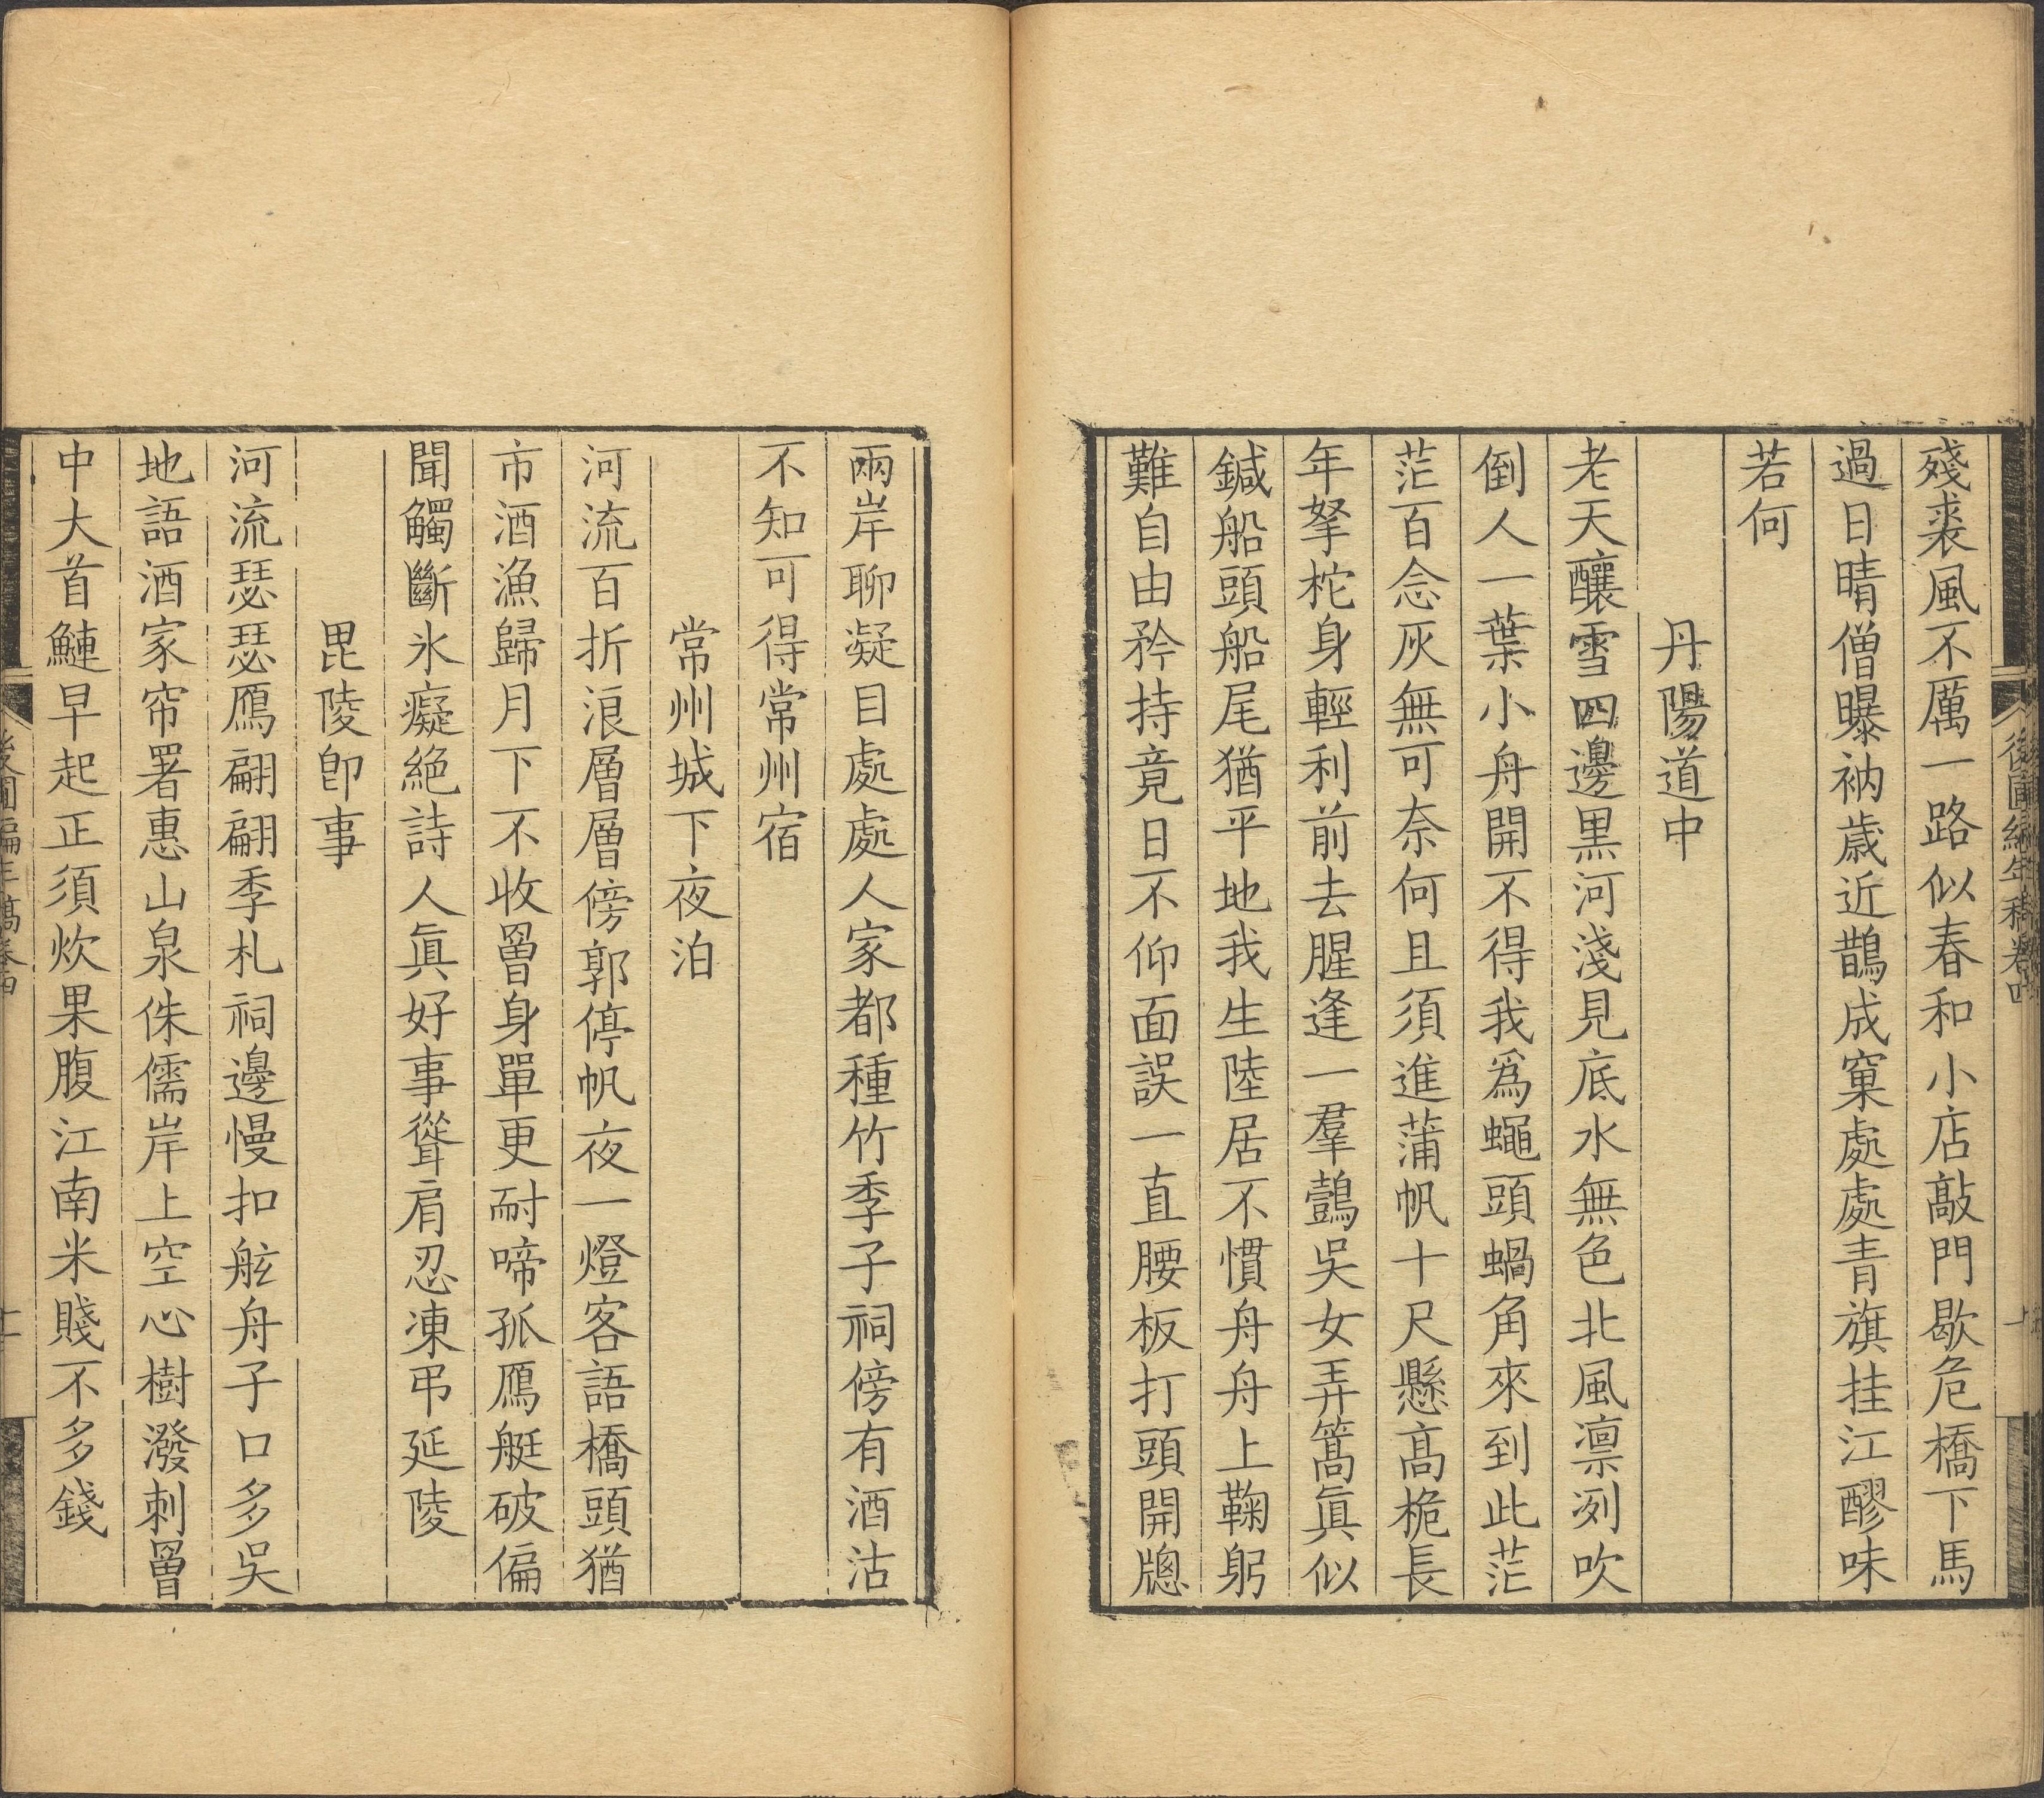 殘裘風不厲一路似春和小店敲門歇危橋下馬
過日晴僧曝衲歲近鵲成窠處處青旗挂江醪味
若何
丹陽道中
老天釀雪四邊黑河淺見底水無色北風凛冽吹
倒人一葉小舟開不得我爲蠅頭蝸角來到此茫
茫百念灰無可奈何且須進蒲帆十尺懸高桅長
年拏柁身輕利前去腥逢一羣鷧吳女弄篙眞似
鍼船頭船尾猶平地我生陸居不慣舟舟上鞠躬
難自由矜持竟日不仰面誤一直腰板打頭開牕
兩岸聊凝目處處人家都種竹季子祠傍有酒沽
不知可得常州宿
常州城下夜泊
河流百折浪層層傍郭停帆夜一燈客語橋頭猶
市酒漁歸月下不收罾身單更耐啼孤鴈艇破偏
聞觸斷氷癡絕詩人眞好事聳肩忍凍弔延陵
毘陵卽事
河流瑟瑟鴈翩翩季札祠邊慢扣舷舟子口多吳
地語酒家帘署惠山泉侏儒岸上空心樹潑刺罾
中大首鰱早起正須炊果腹江南米賤不多錢
後圃編年稿卷四
十
後圃編年稿卷四
十一